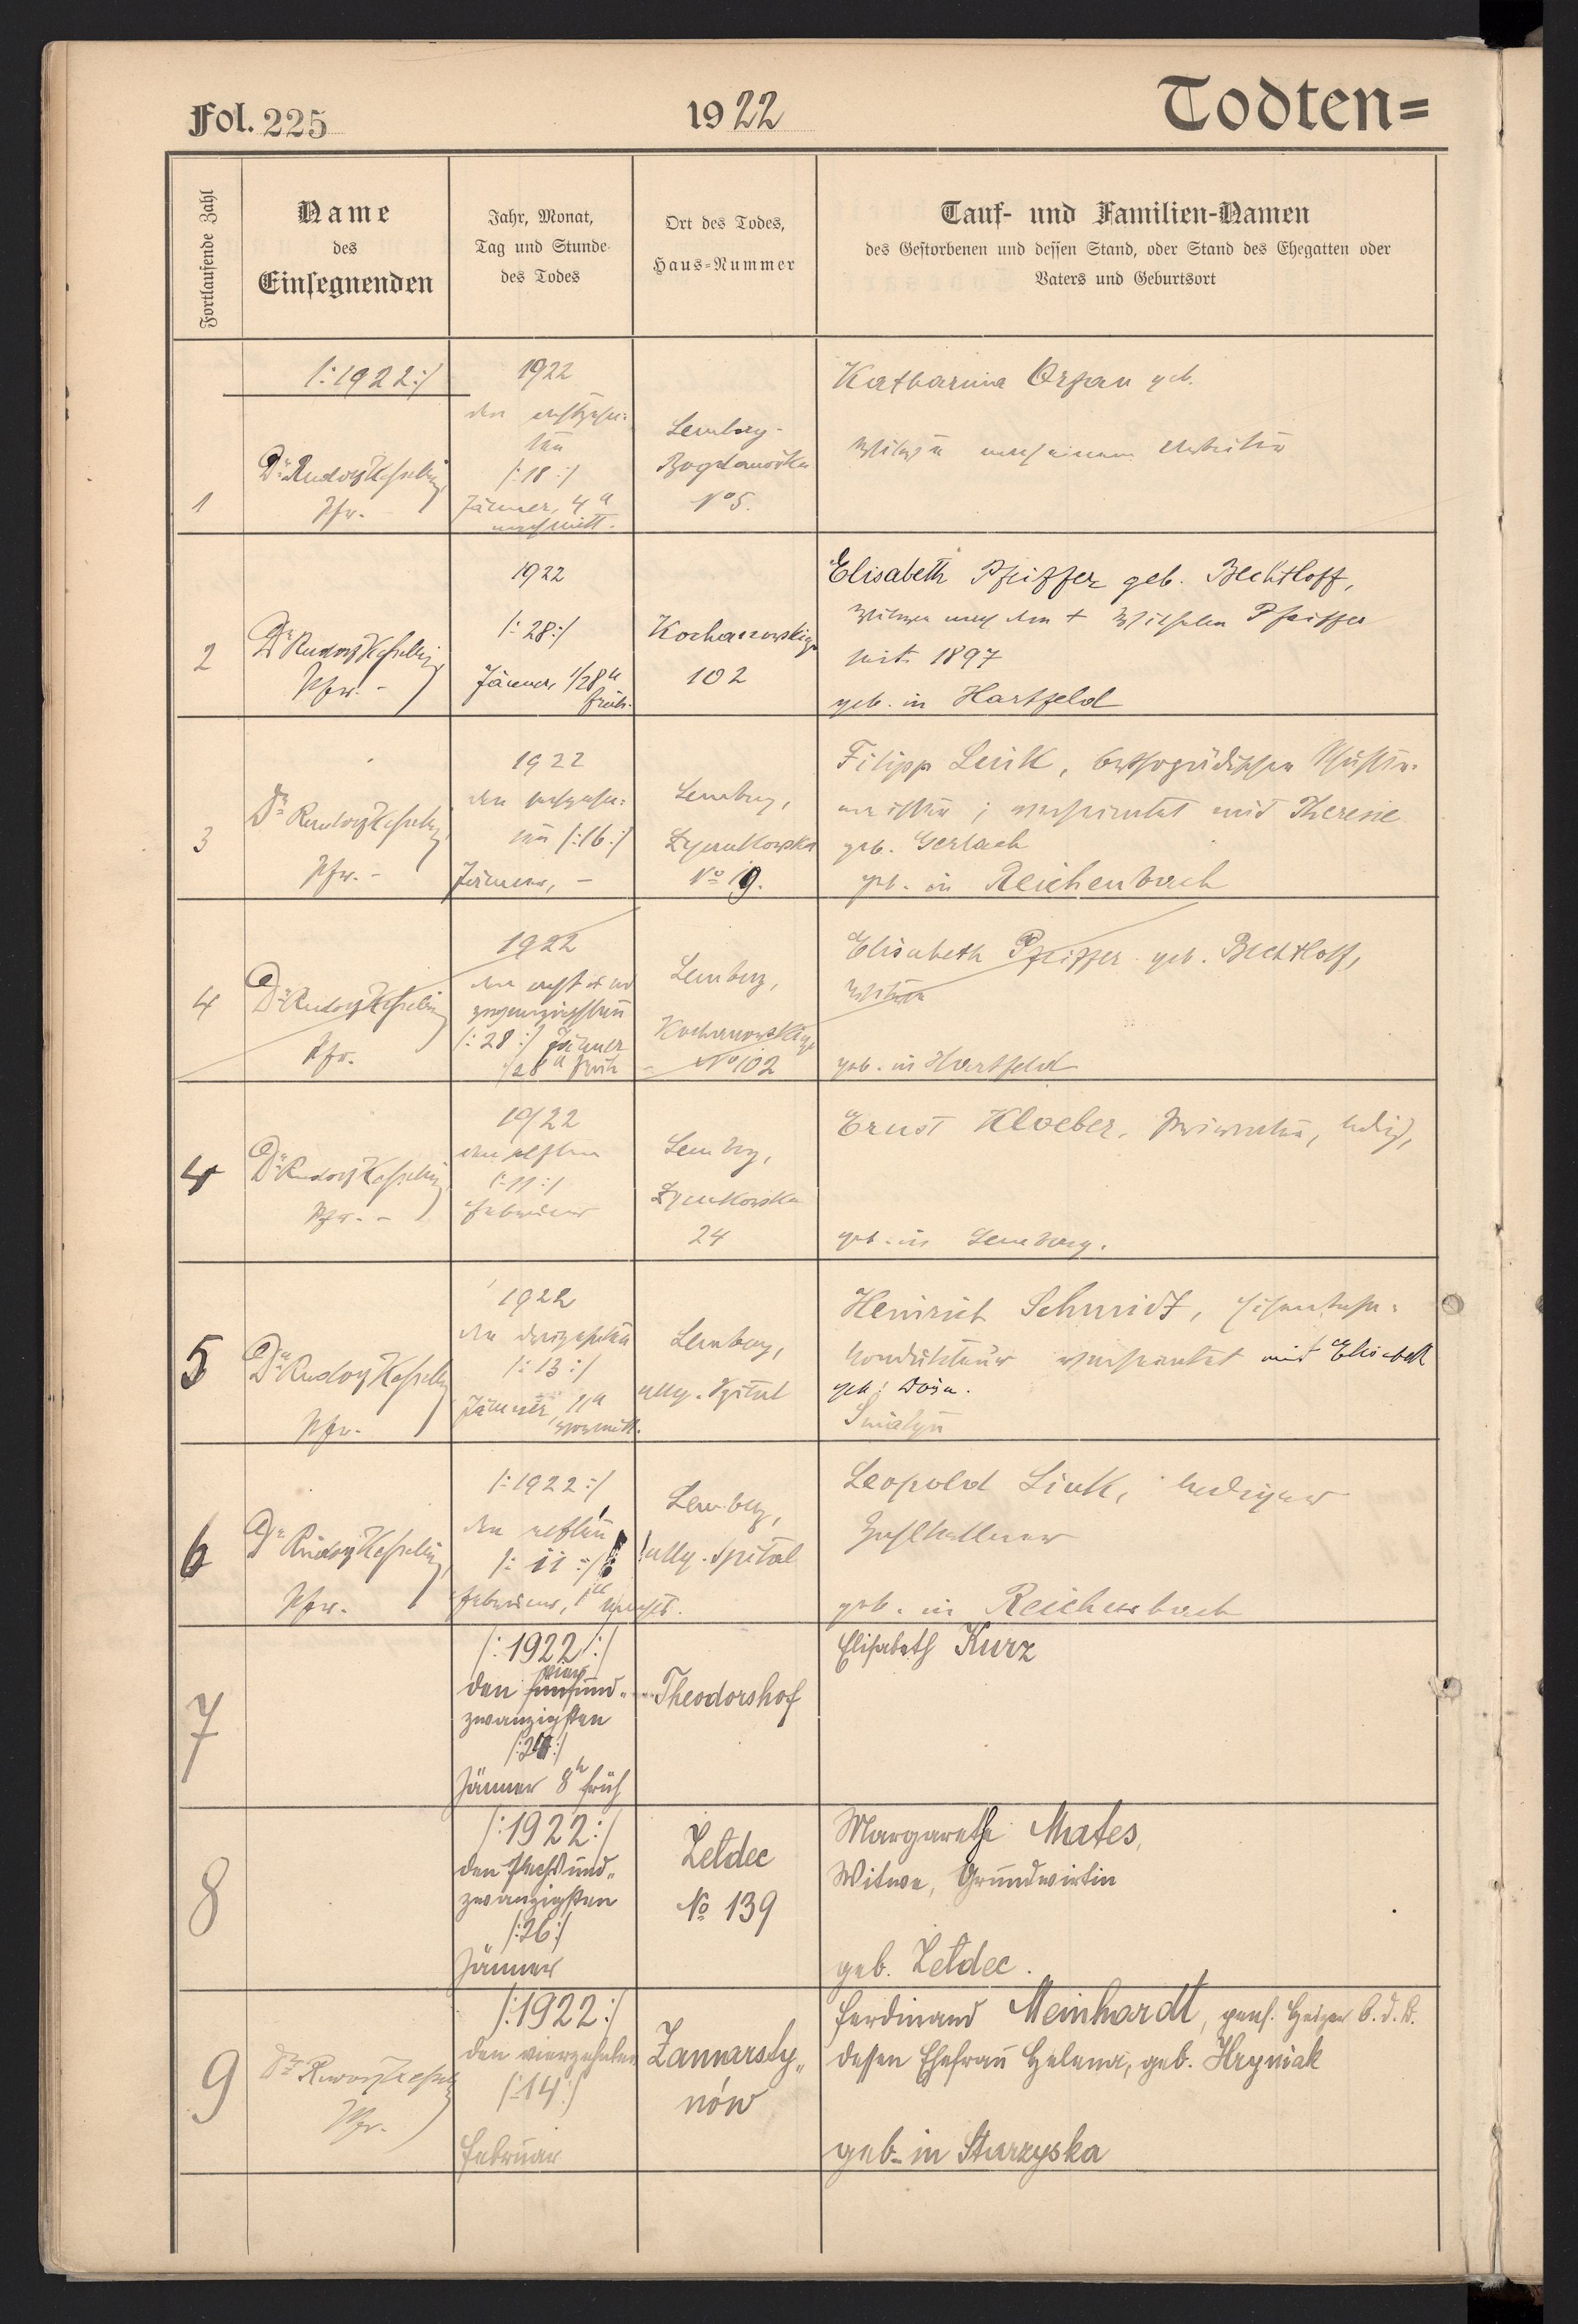 Fol. 225
1922
Todten=
Fortlaufende Zahl
Name
des
Einsegnenden
Jahr, Monat,
Tag und Stunde
des Todes
Ort des Todes,
Haus=Nummer
Tauf- und Familien-Namen
des Gestorbenen und dessen Stand, oder Stand des Ehegatten oder
Vaters und Geburtsort
/:1922:/
1
Dr Rudolf Kesselring
Pfr.
1922
den achtzehn=
ten
/:18:/
Jänner, 4 u
nachmitt.
Lemberg-
Bogdanówka
No 5.
Katharina geb.
Witwe nach einem Arbeiter
2
Dr Rudolf Kesselring
Pfr. -
1922
/:28:/
Jänner, 1/2 8 u
früh.
Kochanowskiego
102
Elisabeth Pfeiffer geb. Bechtloff,
Witwe nach dem + Wilhelm Pfeiffer
seit 1897
geb. in Hartfeld
3
Dr Rudolf Kesselring
Pfr. -
1922
den sechzehn=
ten /:16:/
Jänner, -
Lemberg,
No 19.
Filipp Link, orthopädischer Schuster=
meister; verheiratet mit Theresie
geb. Gerlach
geb. in Reichenbach
4
Dr Rudolf Kesselring
Pfr.
1922
den acht und
zwanzigsten
/:28:/ Jänner
1/2 8 u früh
Lemberg,
Kochanowskiego
No 102
Elisabeth Pfeiffer geb. Bechtloff,
Witwe
geb. in Hartfeld
4
Dr Rudolf Kesselring
Pfr. -
1922
den elften
/:11:/
Februar
Lemberg,
24
Ernst Kloeber, Privatier, ledig,
geb. in Lemberg.
5
Dr Rudolf Kesselring
Pfr.
1922
den dreizehnten
/:13:/
Jänner, 11 u
vormitt.
Lemberg,
allg. Spital
Heinrich Schmidt, Eisenbahn=
kondukteur verheiratet mit Elisabeth
geb: Dorn.
Śniatyn
6
Dr Rudolf Kesselring
Pfr.
/:1922:/
den elften
/:11:/
Februar, 1 u nachts.
Lemberg,
allg. Spital
Leopold Link, lediger
Zahlkellner
geb. in Reichenbach
7
/:1922:/
vier
den fünfund=
zwanzigsten
/:24:/
Jänner 8 h früh
Theodorshof
Elisabeth Kurz
8
/:1922:/
den sechsund=
zwanzigsten
/:26:/
Jänner
Żeldec
No 139
Margarethe Mates,
Witwe, Grundwirtin
geb. Żeldec.
9
Dr Rudolf Kesselring
Pfr.
/:1922:/
den vierzehnten
/:14:/
Februar
Zamarsty=
nów
Ferdinand Meinhardt, pens. Heizer b. d. B.
dessen Ehefrau Helena, geb. Hryniak
geb. in Starzyska